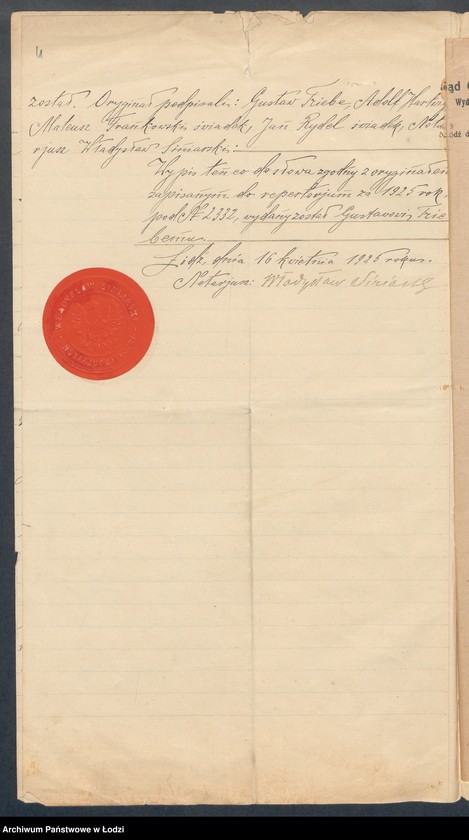 został. Oryginał podpisali: Gustaw Triebe, Adolf
Mateusz Frankowski świadek, Jan Rydel świadek, Nota
rjusz Władysław Siniarski:
Wypis ten co do słowa zgodny z oryginałem
zapisanym do repertorjum za 1925 rok
pod № 2332, wydany został Gustawowi Trie
bemu.
Łódź, dnia 16 kwietnia 1926 roku.
Notarjusz: Władysław Siniarski
Archiwum Państwowe w Łodzi